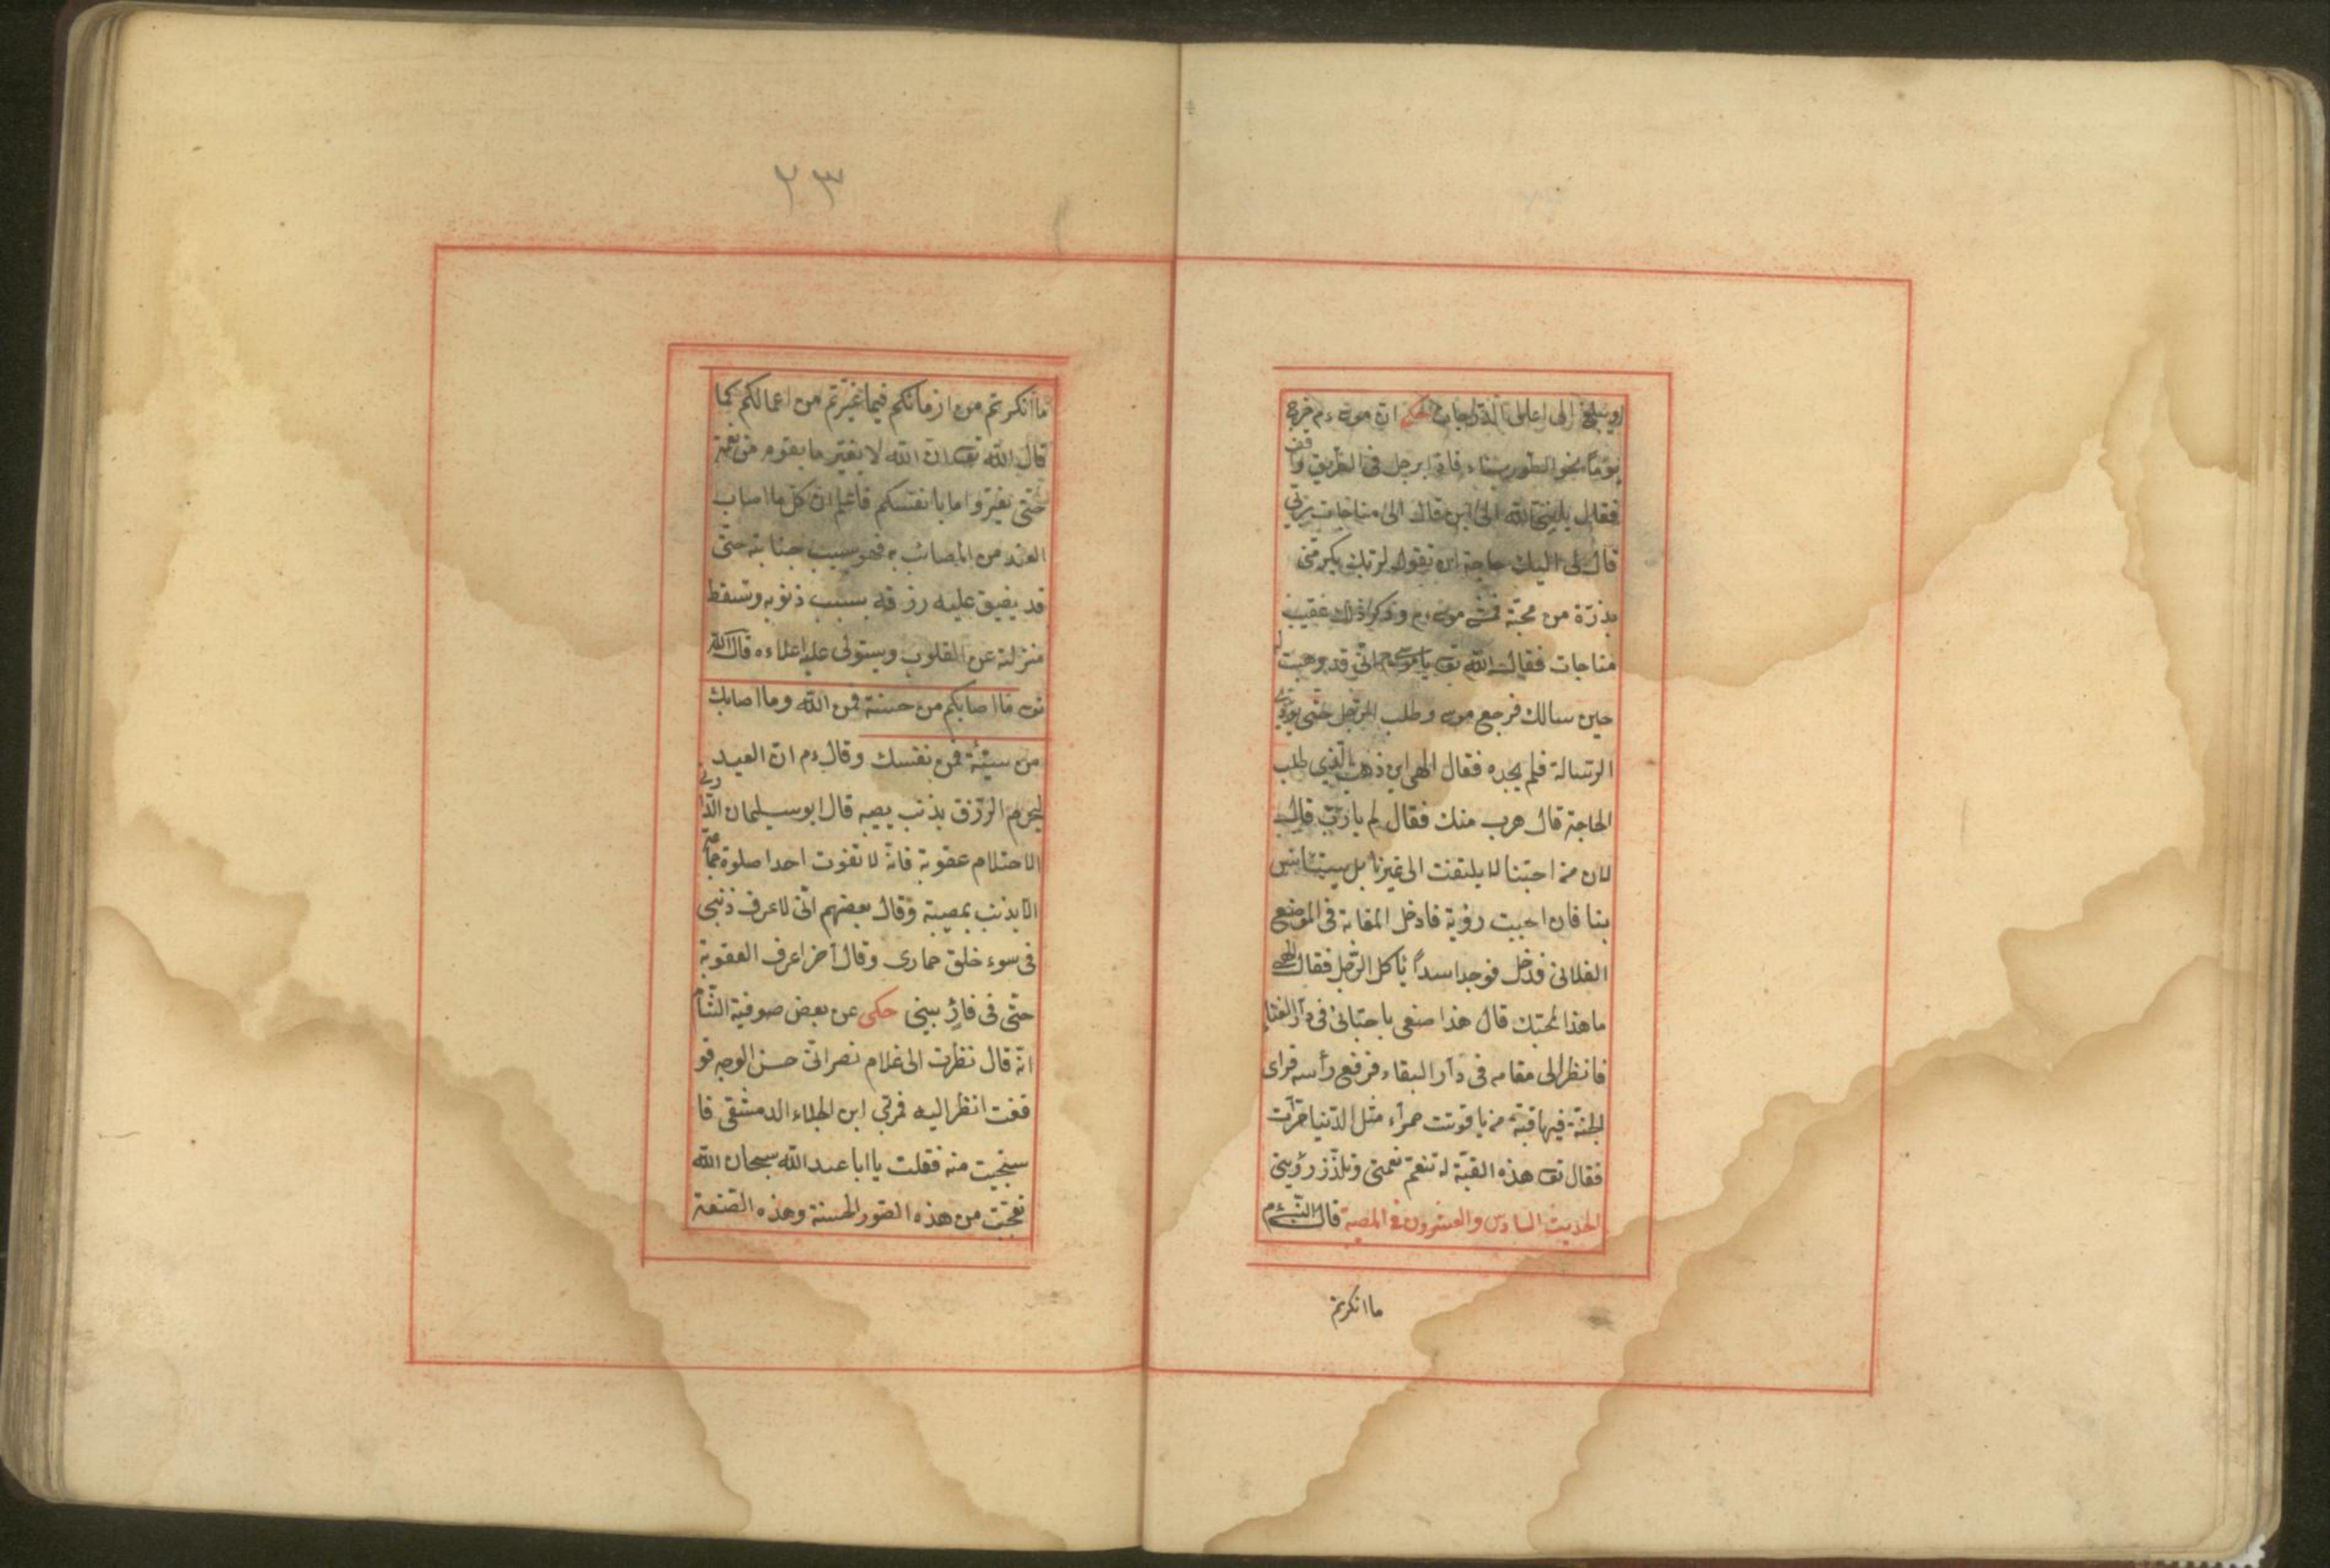 ويبلغ الى اعلى الدرجات حكى ان موسى ءم خرج
يوما نحو الطور سيناء فاذا برجل فى الطريق واقف
فقال يا نبى الله الى اين قال الى مناجات ربّى
قال لى اليك حاجة ان تقول لربك يكرمنى
بذرّة من محبّة موسى ءم وذكر ذلك عقيب
مناجات فقال الله تع يا موسى انّى قد وهبت له
حين سالك فرجع موسى وطلب الرّجل حتّى يؤدّى
الرّسالة فلم يجده فقال الهى اين ذهب الّذى طلب
الحاجة قال هرب منك فقال لم يا ربّ قال
لان من احبّنا لا يلتفت الى غيرنا بل يستأنس
بنا فان احببت رؤية فادخل المقابة فى الموضع
الفلانى فدخل فوجد اسداً يأكل الرّجل فقال الهى
ما هذا قال هذا صنعى باحبّائى فى دآر الفناء
فانظر الى مقامه فى دآر البقاء فرفع رأسه فراى
الجنّة فيها قبّة من ياقوتت حمرآء مثل الدّنيا مرّات
فقال تع هذه القبّة له تنعّم نعمتى وتلذّز رؤيتى
الحديث السادس والعشرون فى المصيبة قال النّبى ءم
ما انكرتم
٢٣
ما انكرتم من ازمانكم فيما غيّرتم من اعمالكم كما
قال الله تع ان الله لا يغيّر ما بقوم من نعمة
حتّى يغيّروا ما بانفسكم فاعلم ان كل ما اصاب
العبد من المصائب فهو بسبب جنايته حتّى
قد يضيق عليه رزقه بسبب ذنوبه وتسقط
منزلته عن القلوب ويستولى عليه اعداءه قال الله
تع ما اصابكم من حسنة فمن الله وما اصابك
من سيّئة فمن نفسك وقال ءم ان العبد
ليحرم الرّزق بذنب يصبه قال ابو سليمان الدّارنى
الاحتلام عقوبة فانّه لا تفوت احدا صلوة جماعة
الا بذنب بمصيبة وقال بعضهم انّى لا عرف ذنبى
فى سوء خلق حمارى وقال آخر اعرف العقوبة
حتّى فى فار بيتى حكى عن بعض صوفية الشّام
انّه قال نظرت الى غلام نصرانّى حسن الوجه فو
قفت انظر اليه فمر بى ابن الجلاء الدمشقى فا
ستحييت منه فقلت يا ابا عبد الله سبحان الله
تعجّبت من هذه الصّور الحسنة وهذه الصّنعة